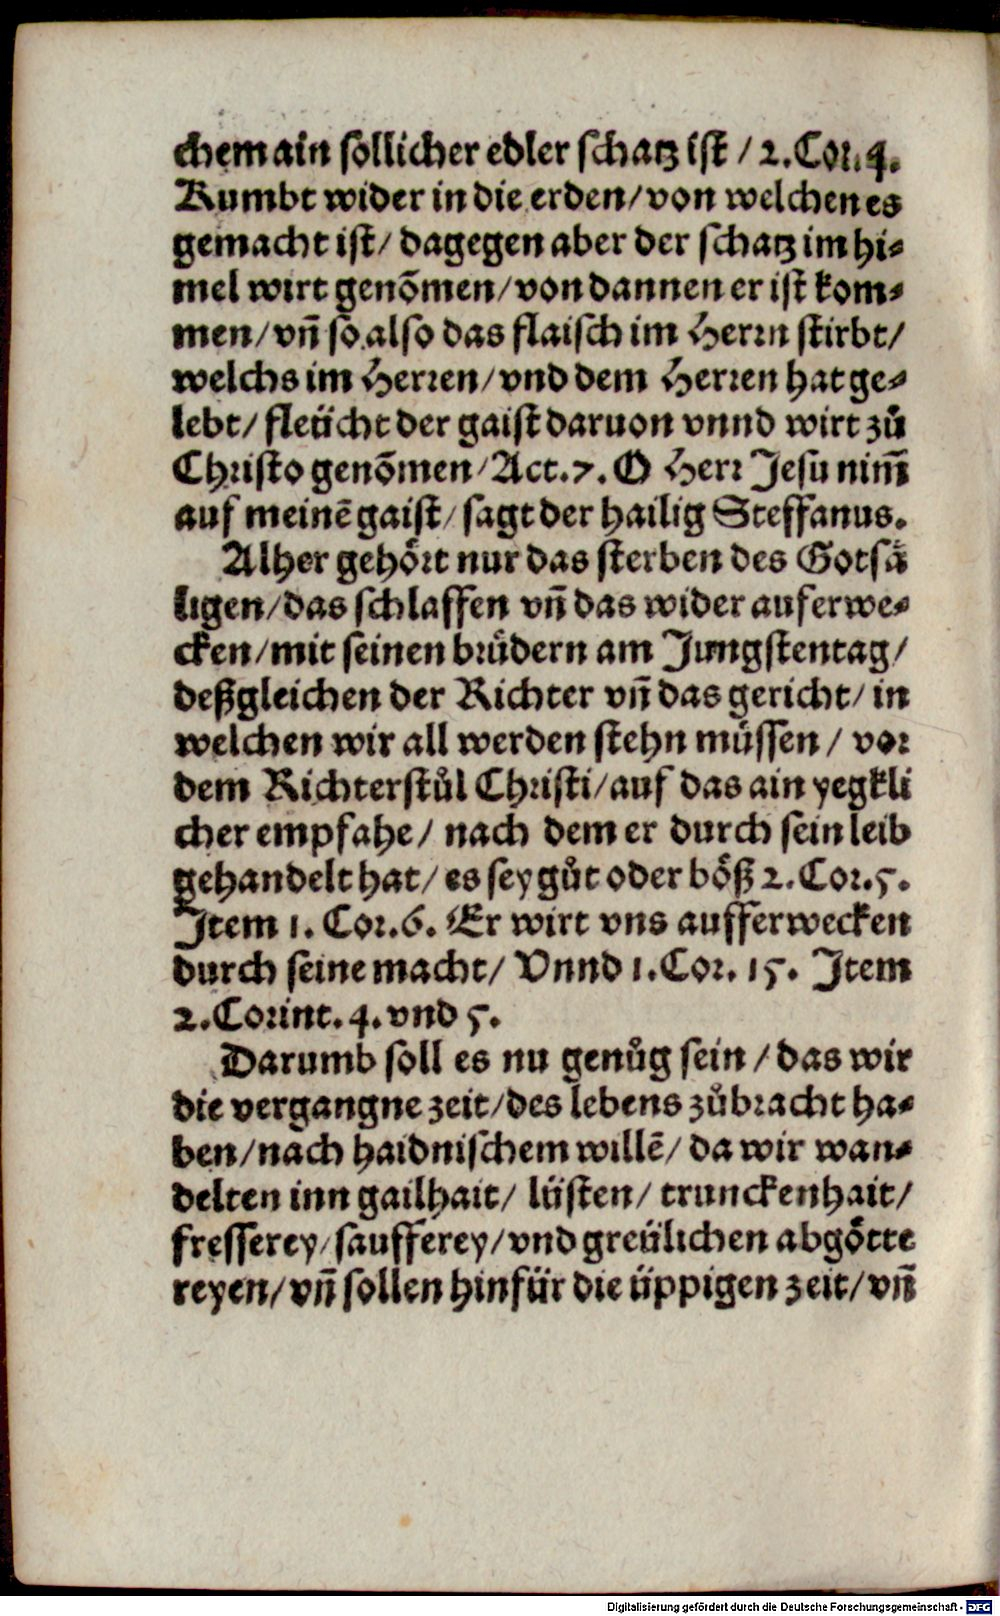 chem ain sollicher edler schatz ist / 2. Cor. 4.
Kumbt wider in die erden / von welchen es
gemacht ist / dagegen aber der schatz im hi-
mel wirt genõmen / von dannen er ist kom-
men / vñ so also das flaisch im Herrn stirbt /
welchs im Herren / vnd dem Herren hat ge-
lebt / fleücht der gaist daruon vnnd wirt zů
Christo genõmen / Act. 7. O Herr Jesu nim̃
auf meinẽ gaist / sagt der hailig Steffanus.
Alher gehört nur das sterben des Gotsä
ligen / das schlaffen vñ das wider auferwe-
cken / mit seinen brüdern am Jungstentag /
deßgleichen der Richter vñ das gericht / in
welchen wir all werden stehn müssen / vor
dem Richterstůl Christi / auf das ain yegkli
cher empfahe / nach dem er durch sein leib
gehandelt hat / es sey gůt oder böß 2. Cor. 5.
Item 1. Cor. 6. Er wirt vns aufferwecken
durch seine macht / Vnnd 1. Cor. 15. Item
2. Corint. 4. vnd 5.
Darumb soll es nu genůg sein / das wir
die vergangne zeit / des lebens zůbracht ha-
ben / nach haidnischem willẽ / da wir wan-
delten inn gailhait / lüsten / trunckenhait /
fresserey / saufferey / vnd greülichen abgötte
reyen / vñ sollen hinfür die üppigen zeit / vñ
Digitalisierung gefördert durch die Deutsche Forschungsgemeinschaft - DFG